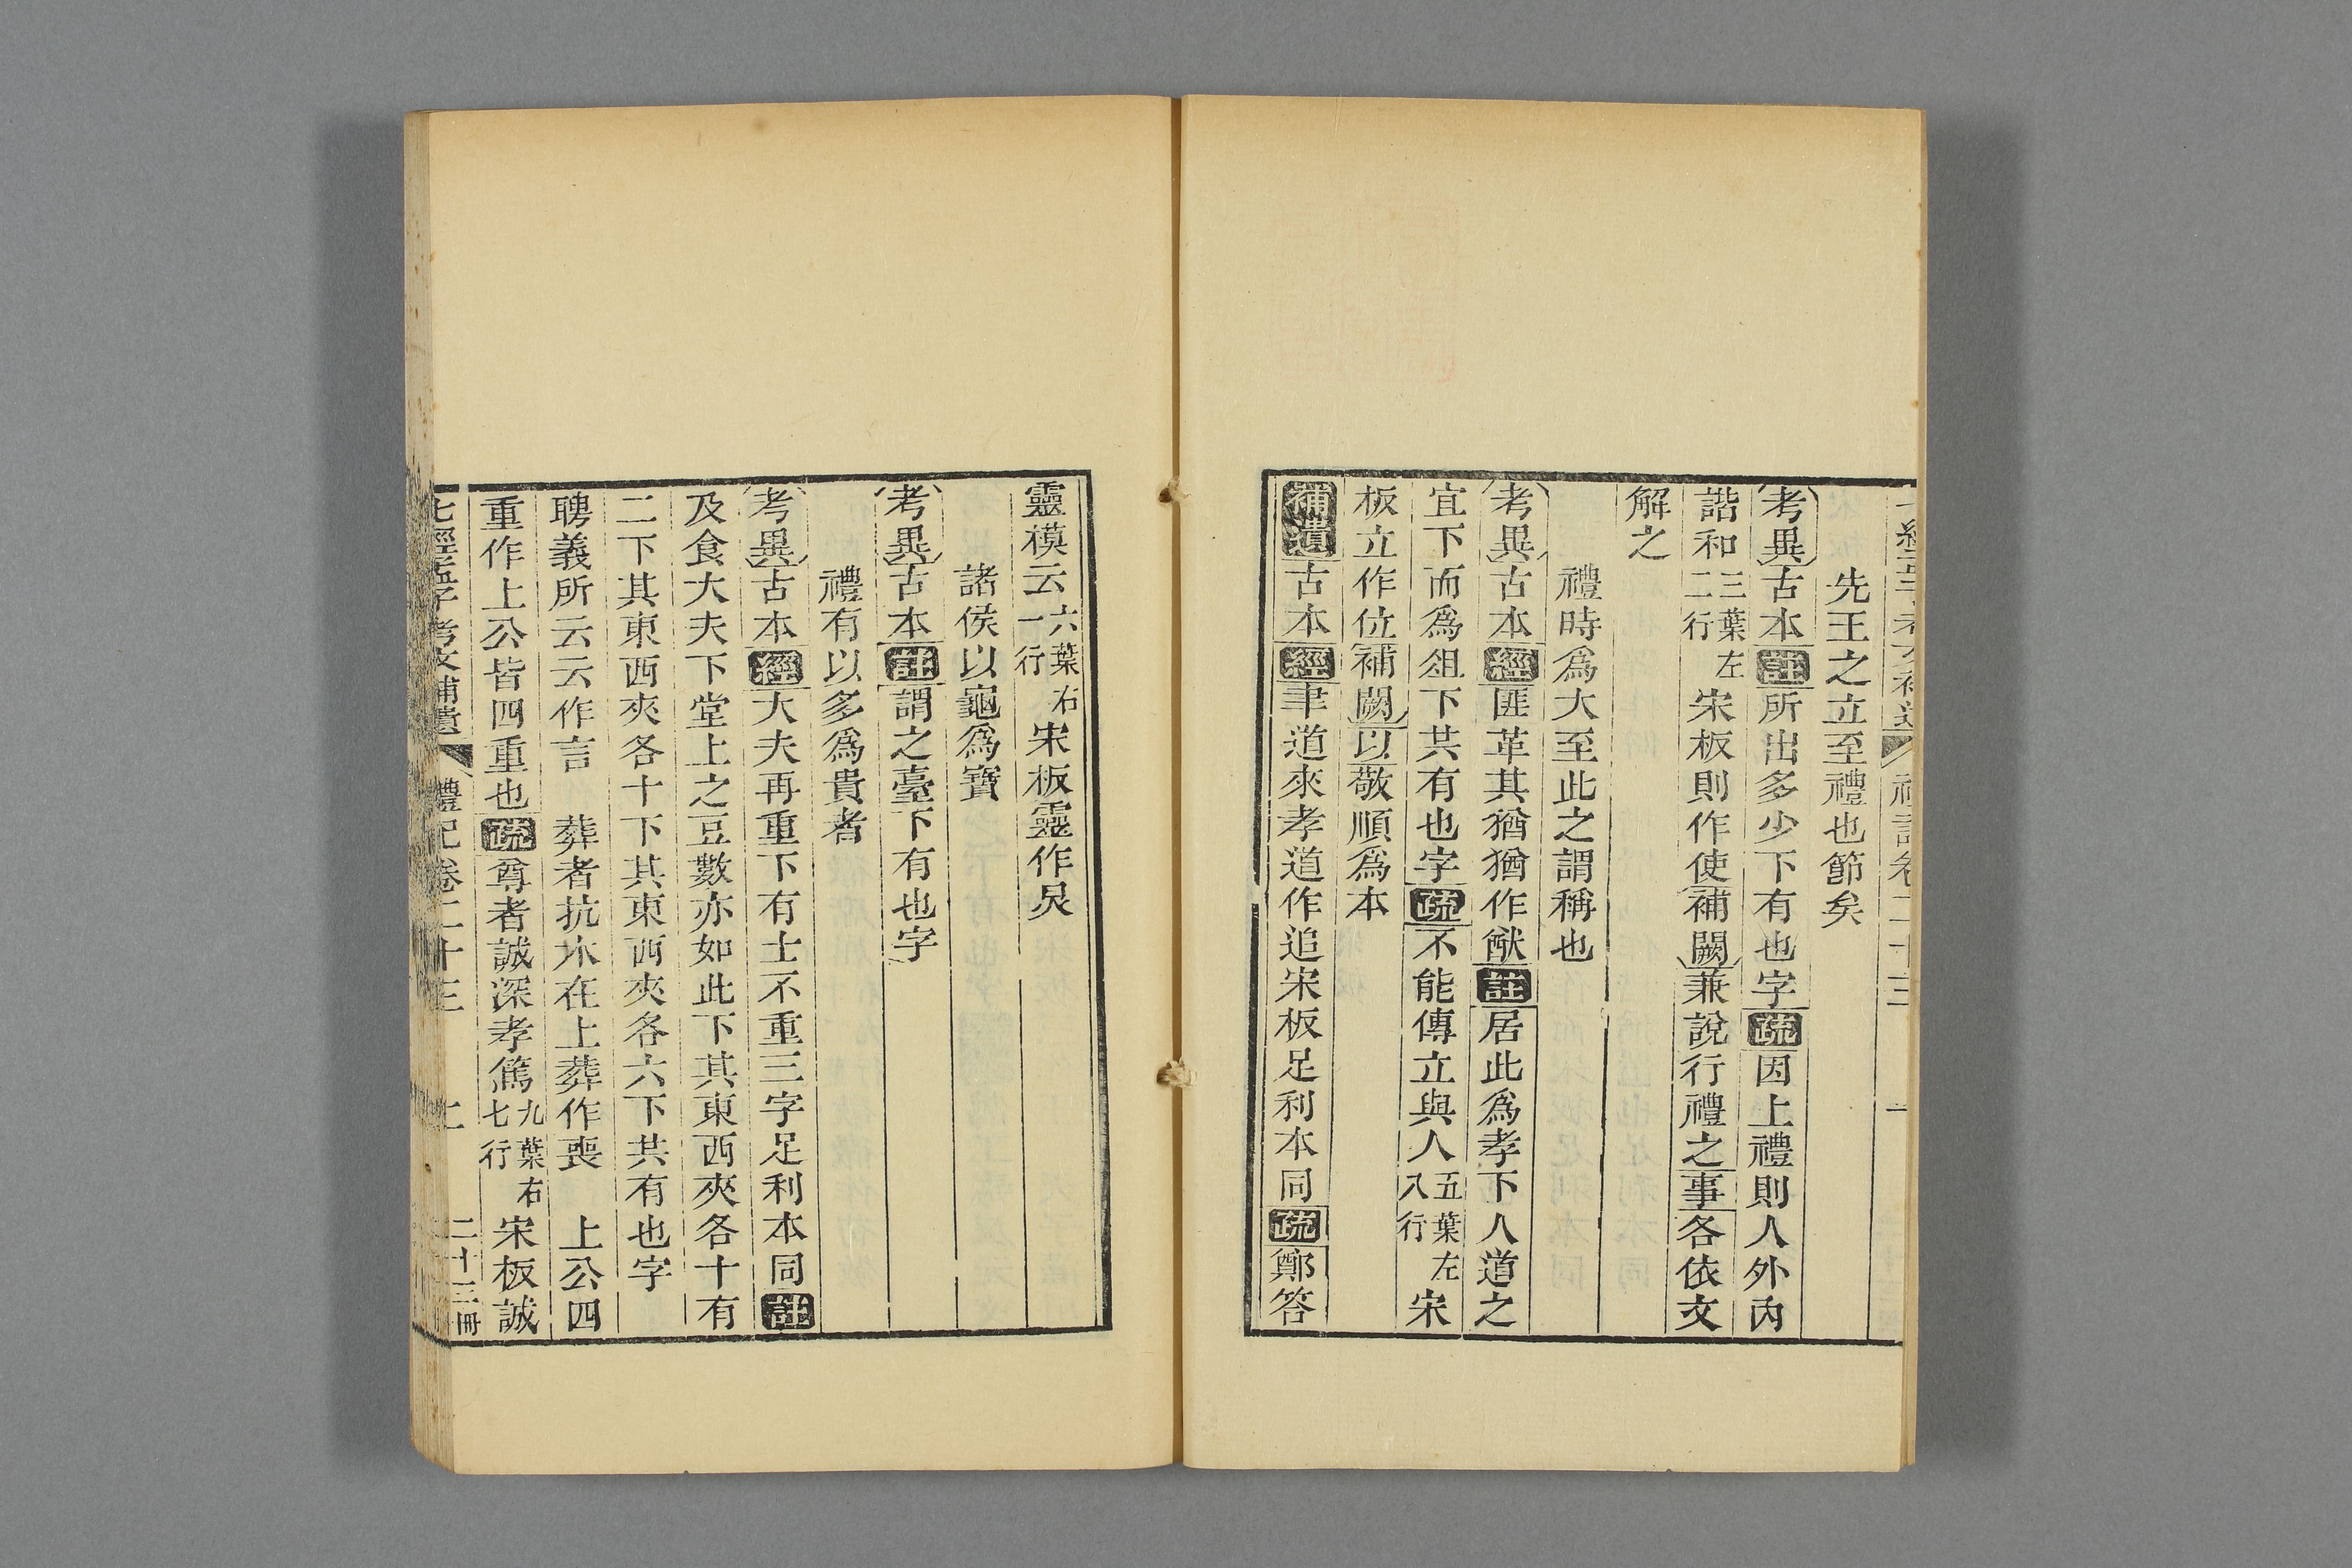 先王之立至禮也節矣
考異古本註所出多少下有也字疏因上禮則人外內
諧和三葉左二行宋板則作使補闕兼說行禮之事各依文
解之
禮時爲大至此之謂稱也
考異古本經匪革其猶猶作猷註居此爲孝下人道之
宜下而爲俎下共有也字疏不能傳立與人五葉左八行宋
板立作位補闕以敬順爲本
補遺古本經聿道來孝道作追宋板足利本同疏鄭答
靈模云六葉右一行宋板靈作炅
諸侯以龜爲寶
考異古本註謂之臺下有也字
禮有以多爲貴者
考異古本經大夫再重下有士不重三字足利本同註
及食大夫下堂上之豆數亦如此下其東西夾各十有
二下其東西夾各十下其東西夾各六下共有也字
聘義所云云作言 葬者抗木在上葬作喪 上公四
重作上公皆四重也疏尊者誠深孝篤九葉右七行宋板誠
七經孟子考文補遺 禮記卷二十三 二十三冊